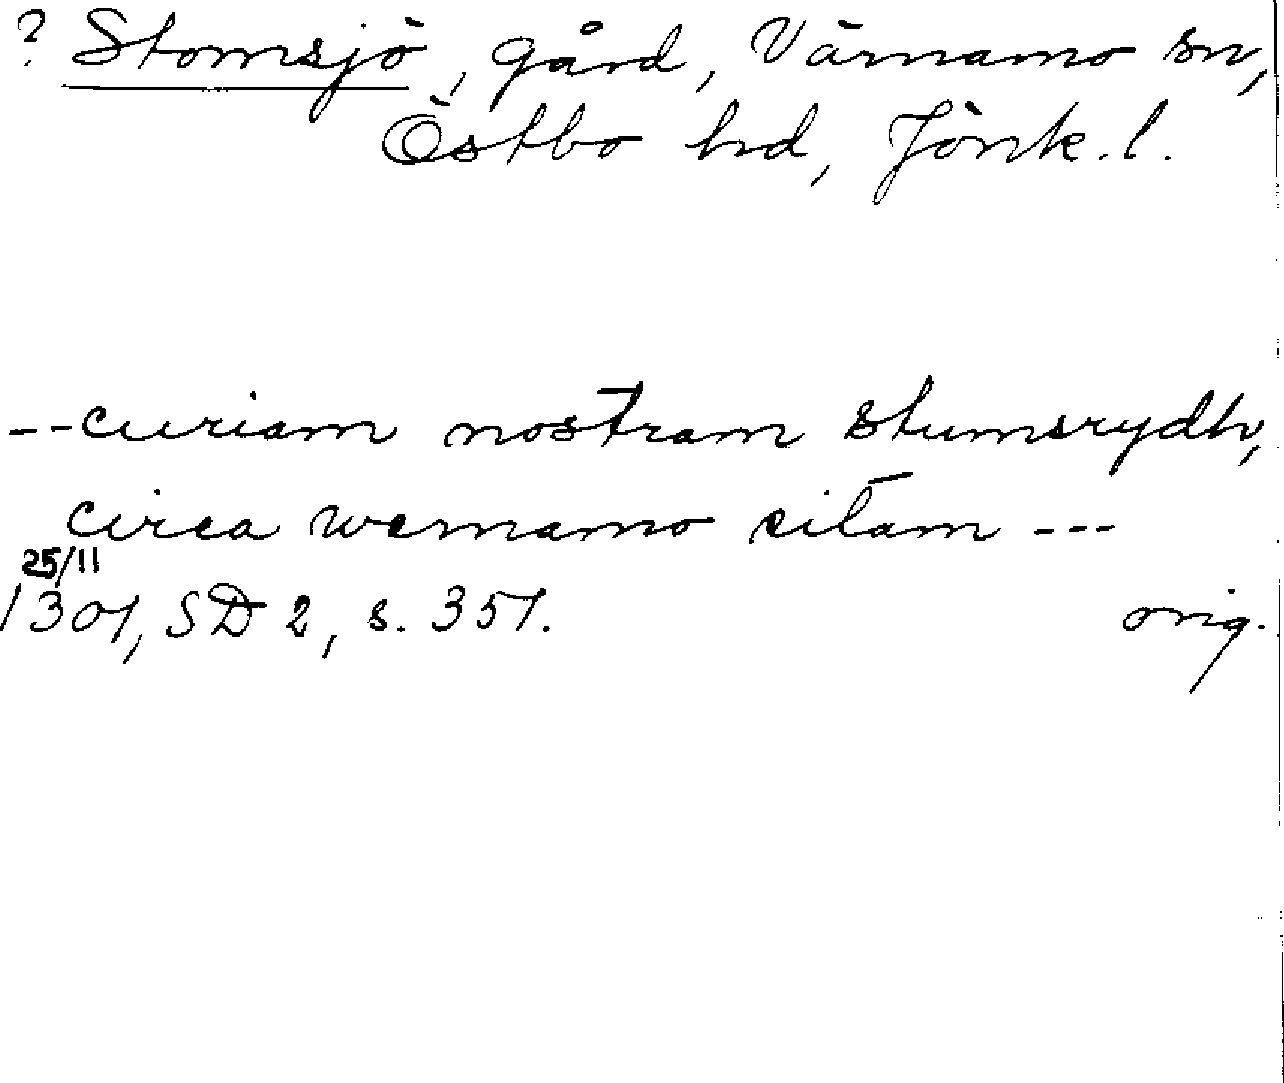 ? Stomsjö, gård, Värnamo sn,
Östbo hd, Jönk. l.
--curiam nostram stumsrydh,
circa wernamo sitam ---
25/11
1301, SD 2, s. 351.
orig.